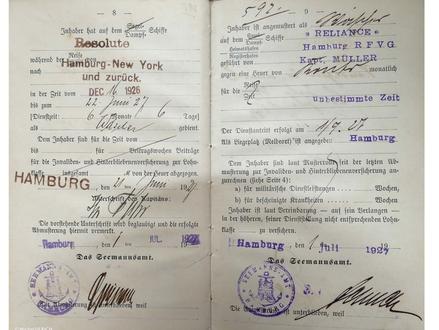 — 8 —
Inhaber hat auf dem
Dampf- Schiffe
Resolute
während der Reise
Hamburg-New York
und zurück.
in der Zeit vom DEC 1926
bis zum 22. Juni 27
(Dienstzeit: 6 Monate 6 Tage)
als gedient.
Dem Inhaber sind für die Beitragswochen Beiträge
für die Invaliden- und Hinterbliebenenversicherung zur Lohn-
HAMBURG, den Juni 1927
Unterschrift des Kapitäns:
Die vorstehende Unterschrift wird beglaubigt und die erfolgte
Abmusterung hiermit vermerkt.
Hamburg, den 1 JUL. 1927
Das Seemannsamt.
SEEMANNSAMT
9
Inhaber ist angemustert als
auf dem Dampf- Schiffe
RELIANCE
Heimatshafen Hamburg R.F.V.G.
geführt von Kapt. MÜLLER
gegen eine Heuer von monatlich
für die Reise
Zeit unbestimmte Zeit
Der Dienstantritt erfolgt am 1/7.27
Als Liegeplatz (Meldeort) ist angegeben: Hamburg
Dem Inhaber sind laut Musterung seit der letzten Ab-
musterung zur Invaliden- und Hinterbliebenenversicherung
anzurechnen (siehe Seite 4):
a) für militärische Dienstleistungen Wochen
b) für bescheinigte Krankheiten Wochen
Inhaber ist laut Vereinbarung – auf sein Verlangen –
in der höheren, seiner Dienststellung nicht entsprechenden Lohn-
klasse zu versichern.
Hamburg, den 1 Juli 1927
Das Seemannsamt.
SEEMANNSAMT